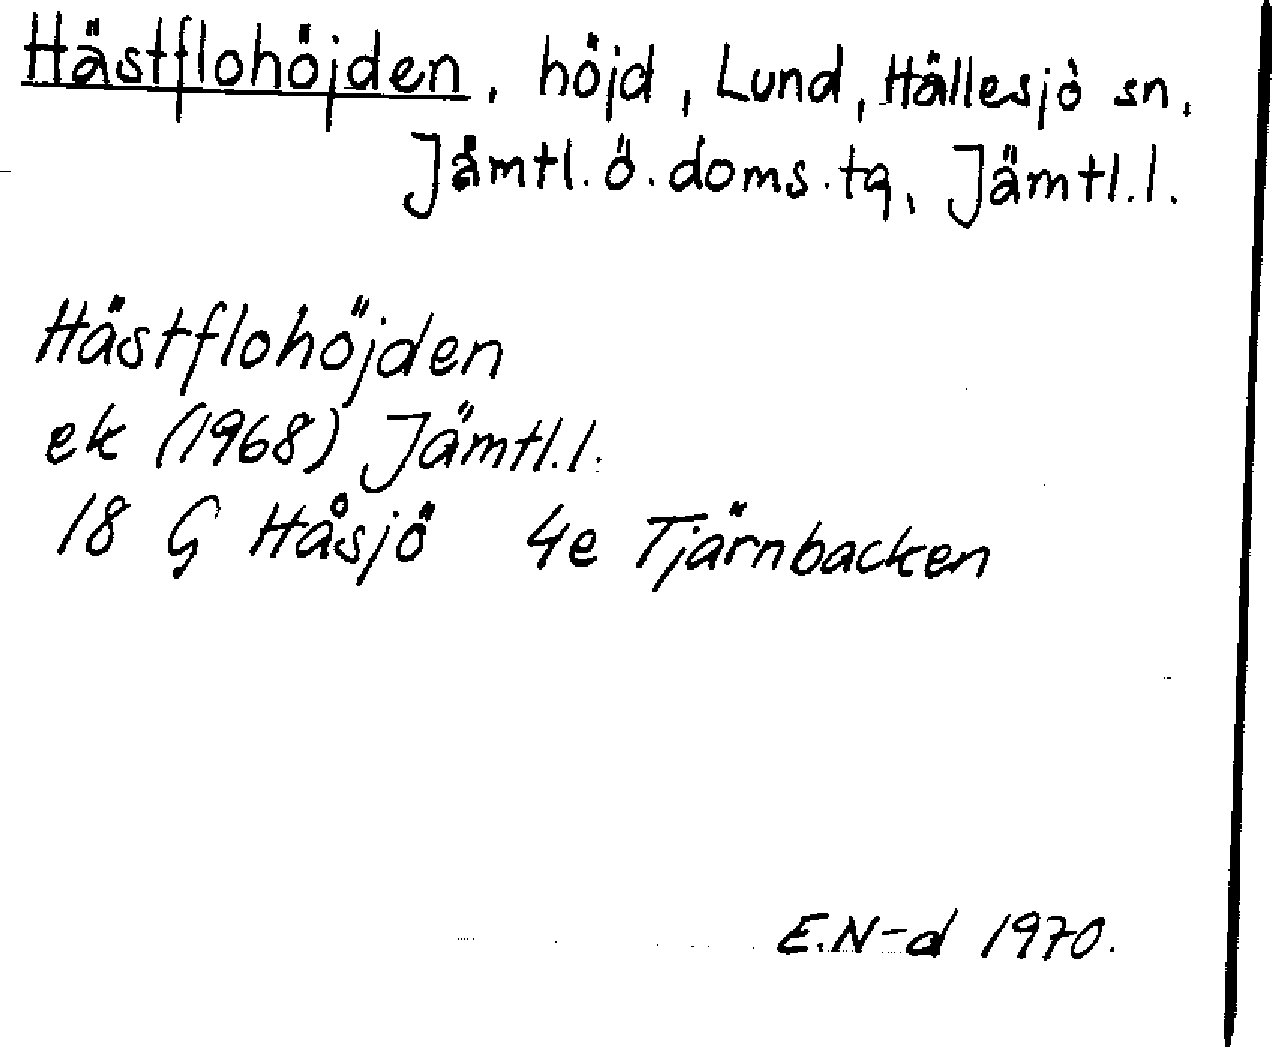 Hästflohöjden, höjd, Lund, Hällesjö sn,
Jämtl. ö. doms. tg, Jämtl. l.
Hästflohöjden
ek (1968) Jämtl. l.
18 G Håsjö 4e Tjärnbacken
E.N-d 1970.